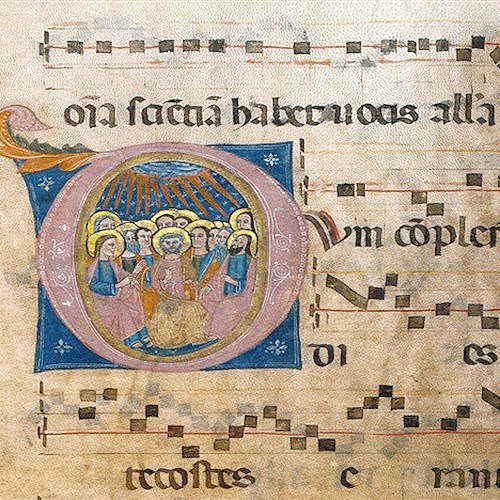 oīa sciētiā habet uocis all'a
DVm cōpler
di es
tecostes e rant